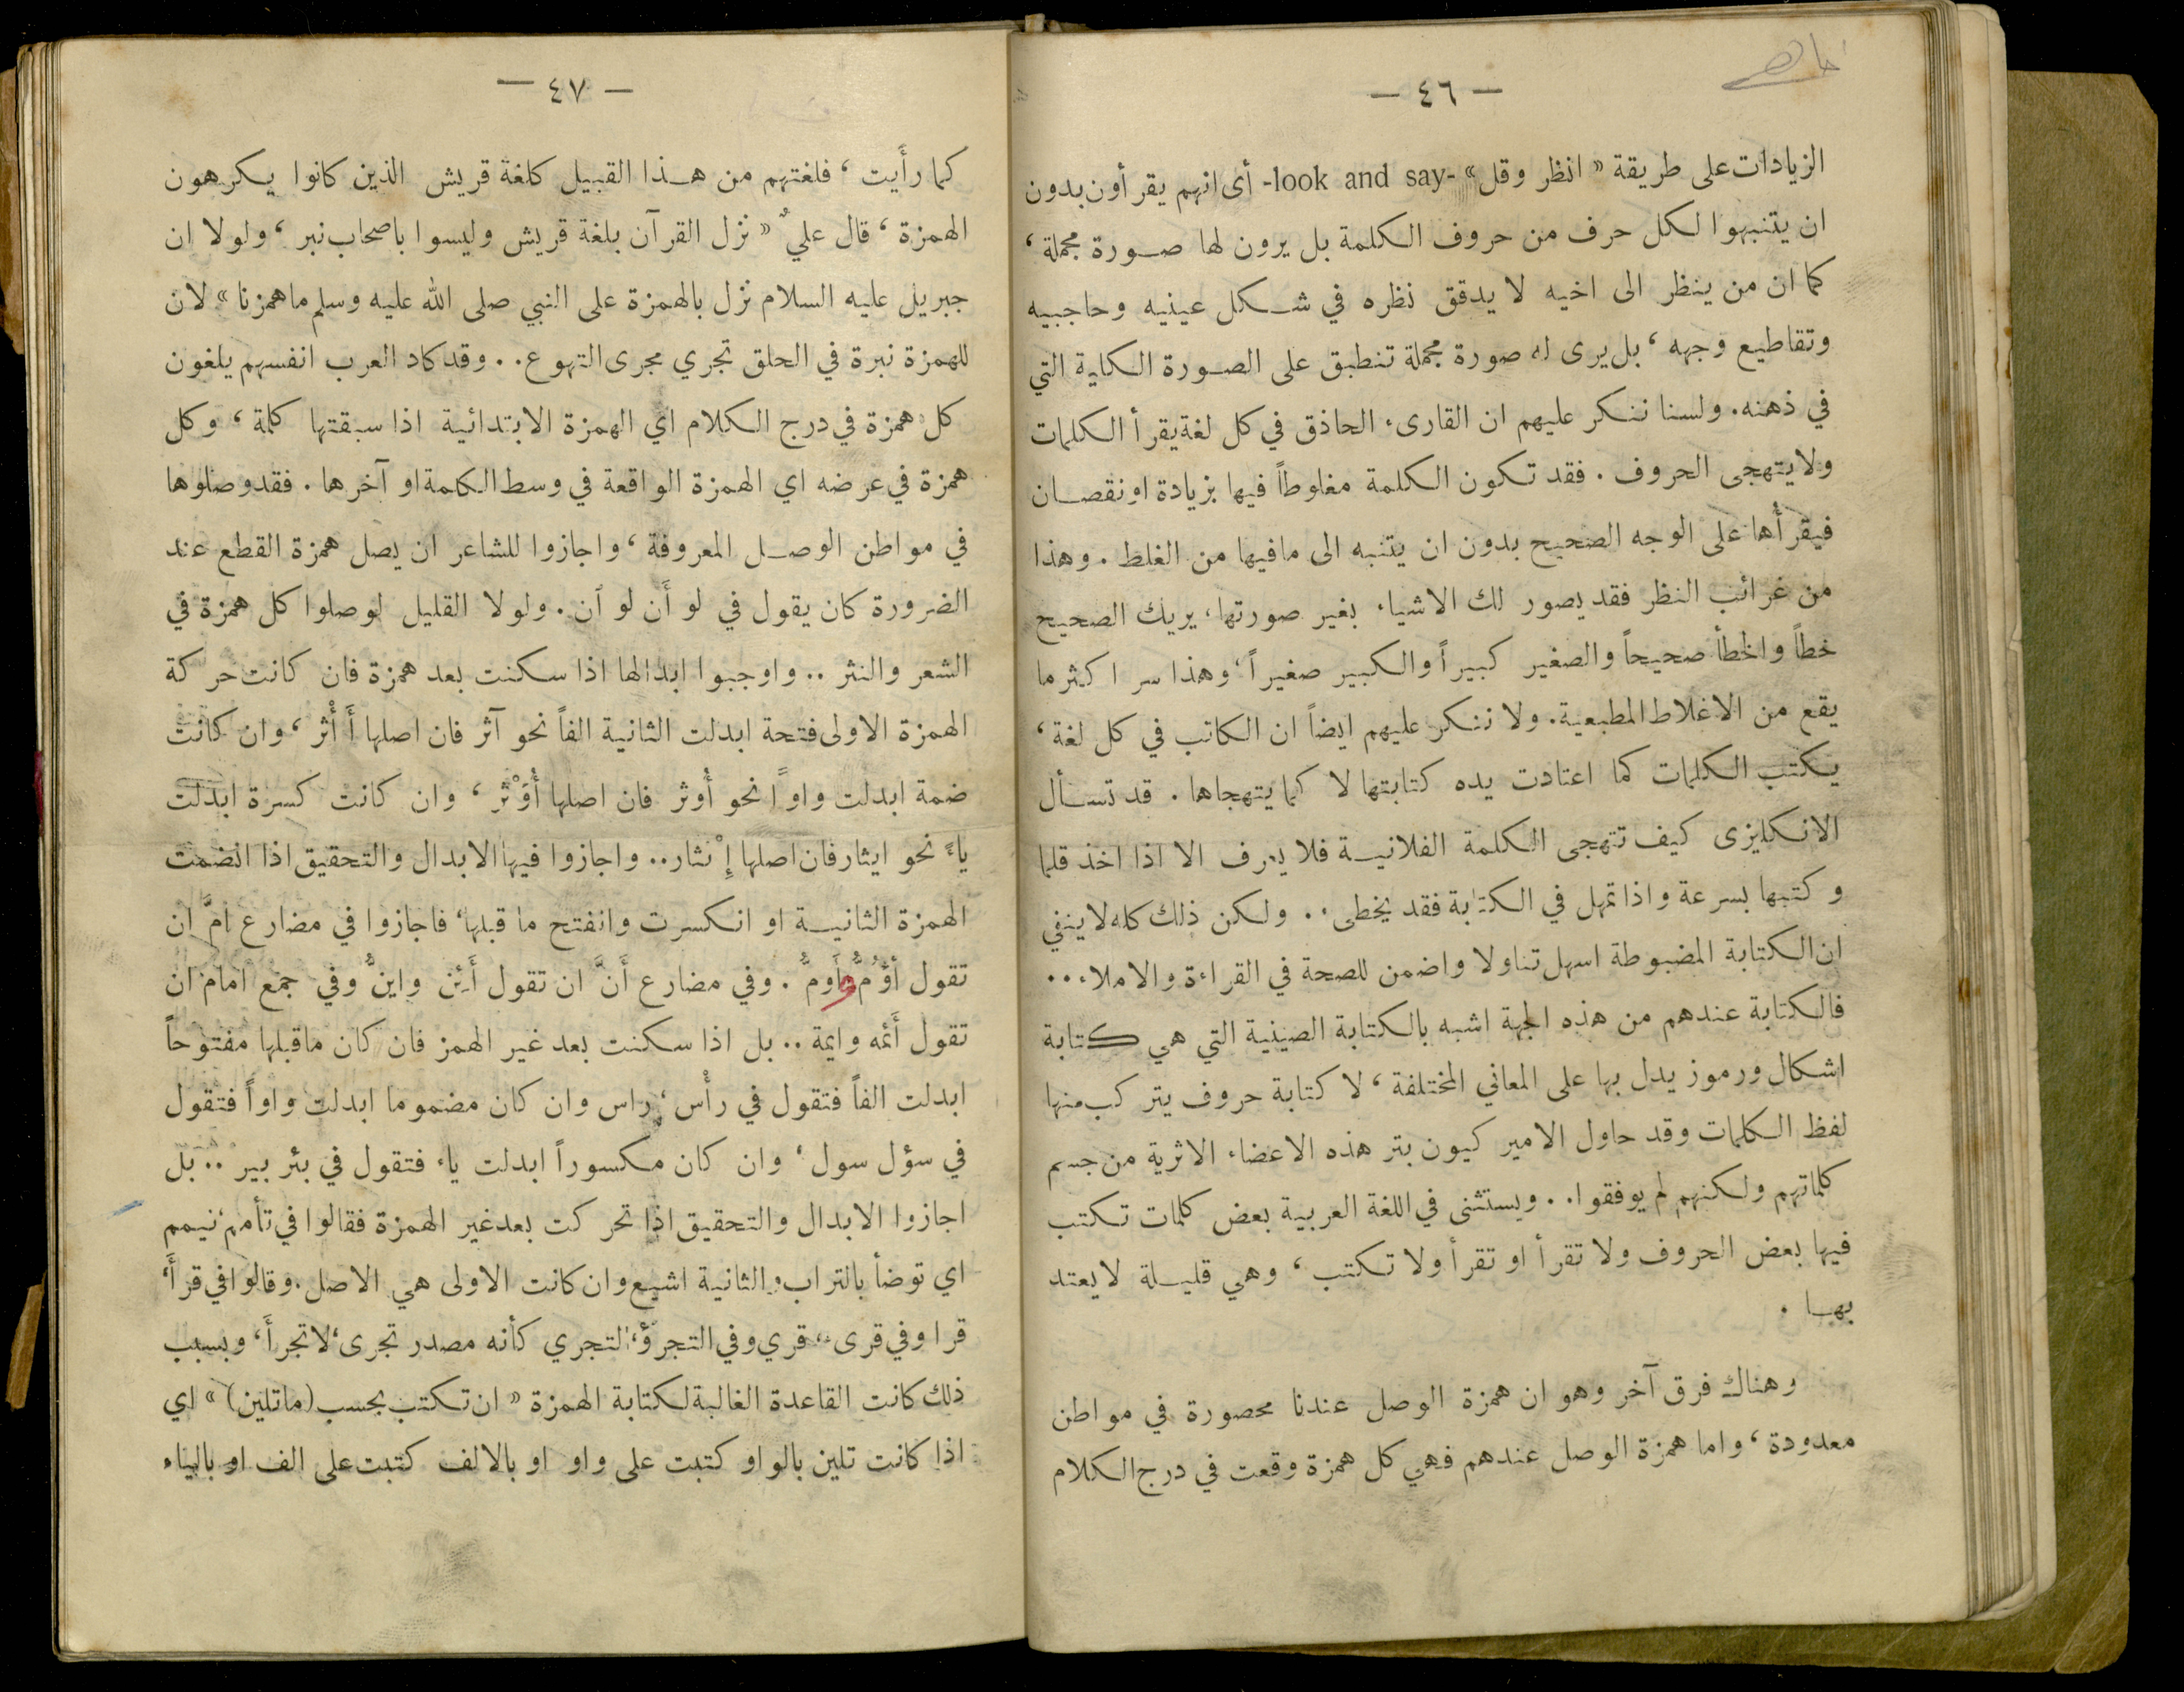 — ٤٦ —
الزيادات على طريقة « انظر وقل» -look and say- أى انهم يقرأون بدون
ان يتنبهوا لكل حرف من حروف الكلمة بل يرون لها صورة مجملة ،
كما ان من ينظر الى اخيه لا يدقق نظره في شكل عينيه وحاجبيه
وتقاطيع وجهه ، بل يرى له صورة مجملة تنطبق على الصورة الكلية التي
في ذهنه. ولسنا ننكر عليهم ان القارىء الحاذق في كل لغة يقرأ الكلمات
ولا يتهجى الحروف . فقد تكون الكلمة مغلوطاً فيها بزيادة او نقصان
فيقرأها على الوجه الصحيح بدون ان يتنبه الى مافيها من الغلط . وهذا
من غرائب النظر فقد يصور لك الاشياء بغير صورتها، يريك الصحيح
خطأ والخطأ صحيحاً والصغير كبيراً والكبير صغيراً، وهذا سر اكثر ما
يقع من الاغلاط المطبعية. ولا ننكر عليهم ايضاً ان الكاتب في كل لغة ،
يكتب الكلمات كما اعتادت يده كتابتها لا كما يتهجاها . قد تسأل
الانكليزى كيف تتهجى الكلمة الفلانية فلا يعرف الا اذا اخذ قلما
وكتبها بسرعة واذا تمهل في الكتابة فقد يخطىء . ولكن ذلك كله لا ينفي
ان الكتابة المضبوطة اسهل تناولا واضمن للصحة في القراءة والاملاء ..
فالكتابة عندهم من هذه الجهة اشبه بالكتابة الصينية التي هي كتابة
اشكال ورموز يدل بها على المعاني المختلفة ، لا كتابة حروف يتركب منها
لفظ الكلمات وقد حاول الامير كيون بتر هذه الاعضاء الاثرية من جسم
كلماتهم ولكنهم لم يوفقوا. . ويستثنى في اللغة العربية بعض كلمات تكتب
فيها بعض الحروف ولا تقرأ او تقرأ ولا تكتب ، وهي قليلة لا يعتد
بها .
وهناك فرق آخر وهو ان همزة الوصل عندنا محصورة في مواطن
معدودة ، واما همزة الوصل عندهم فهي كل همزة وقعت في درج الكلام
— ٤٧ —
كما رأَيت ، فلغتهم من هذا القبيل كلغة قريش الذين كانوا يكرهون
الهمزة ، قال عليٌ « نزل القرآن بلغة قريش وليسوا باصحاب نبر ، ولولا ان
جبريل عليه السلام نزل بالهمزة على النبي صلى الله عليه وسلم ماهمزنا » لان
للهمزة نبرة في الحلق تجري مجرى التهوع. . وقد كاد العرب انفسهم يلغون
كل همزة في درج الكلام اي الهمزة الابتدائية اذا سبقتها كلمة ، وكل
همزة في عرضه اي الهمزة الواقعة في وسط الكلمة او آخرها . فقد وصلوها
في مواطن الوصل المعروفة ، واجازوا للشاعر ان يصل همزة القطع عند
الضرورة كان يقول في لو أَن لو ٱن. ولولا القليل لوصلوا كل همزة في
الشعر والنثر .. واوجبوا ابدالها اذا سكنت بعد همزة فان كانت حركة
الهمزة الاولى فتحة ابدلت الثانية الفاً نحو آثر فان اصلها أَأْثر ، وان كانت
ضمة ابدلت واواً نحو أُوثر فان اصلها أُؤْثر ، وان كانت كسرة ابدلت
ياءً نحو ايثار فان اصلها إِئْثار.. واجازوا فيها الابدال والتحقيق اذا انضمت
الهمزة الثانية او انكسرت وانفتح ما قبلها، فاجازوا في مضارع امَّ ان
تقول أَؤُمُّ وأَومُّ . وفي مضارع أَنَّ ان تقول أَئِن واينُّ وفي جمع امام ان
تقول أَئمه وايمة .. بل اذا سكنت بعد غير الهمز فان كان ماقبلها مفتوحاً
ابدلت الفاً فتقول في رأْس ، راس وان كان مضموما ابدلت واواً فتقول
في سؤل سول ، وان كان مكسوراً ابدلت ياء فتقول في بئر بير .. بل
اجازوا الابدال والتحقيق اذا تحركت بعد غير الهمزة فقالوا في تأمم، تيمم
اي توضأ بالتراب والثانية اشيع وان كانت الاولى هي الاصل. وقالوا في قرأَ،
قرا وفي قرىء، قري وفي التجرؤ، التجري كأنه مصدر تجرى، لا تجرأَ، وبسبب
ذلك كانت القاعدة الغالبة لكتابة الهمزة « ان تكتب بحسب (ماتلين) » اي
اذا كانت تلين بالواو كتبت على واو او بالالف كتبت على الف او بالياء